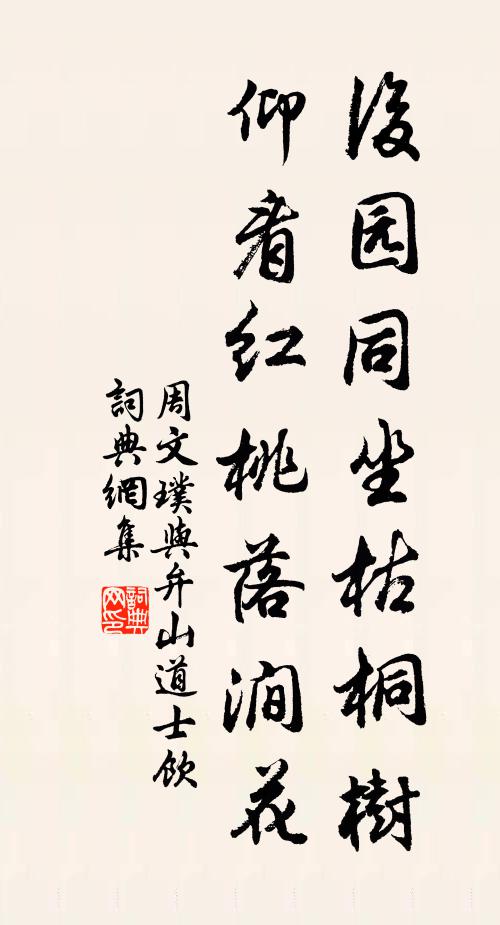 後园同坐枯桐樹
仰看红桃落澗花
周文璞與弁山道士飲
詞典網集
詞典网印